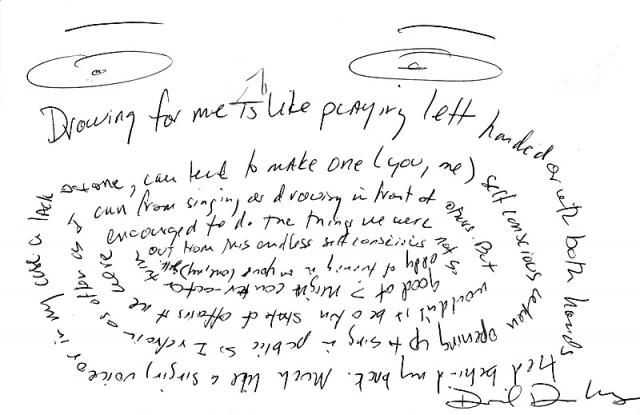 Drawing for me is like playing left handed or with both hands
tied behind my back. Much like a singing voice or in my case a lack
of one, can tend to make one (you, me) self conscious when
opening up to sing in public so I refrain as often as I
can from singing, as drawing in front of others. But
wouldn't it be a fun state of affairs if we were
encouraged to do the things we were not so
good at? Might counter-act
out from this endless self conscious
of tuning in your (our, my) self